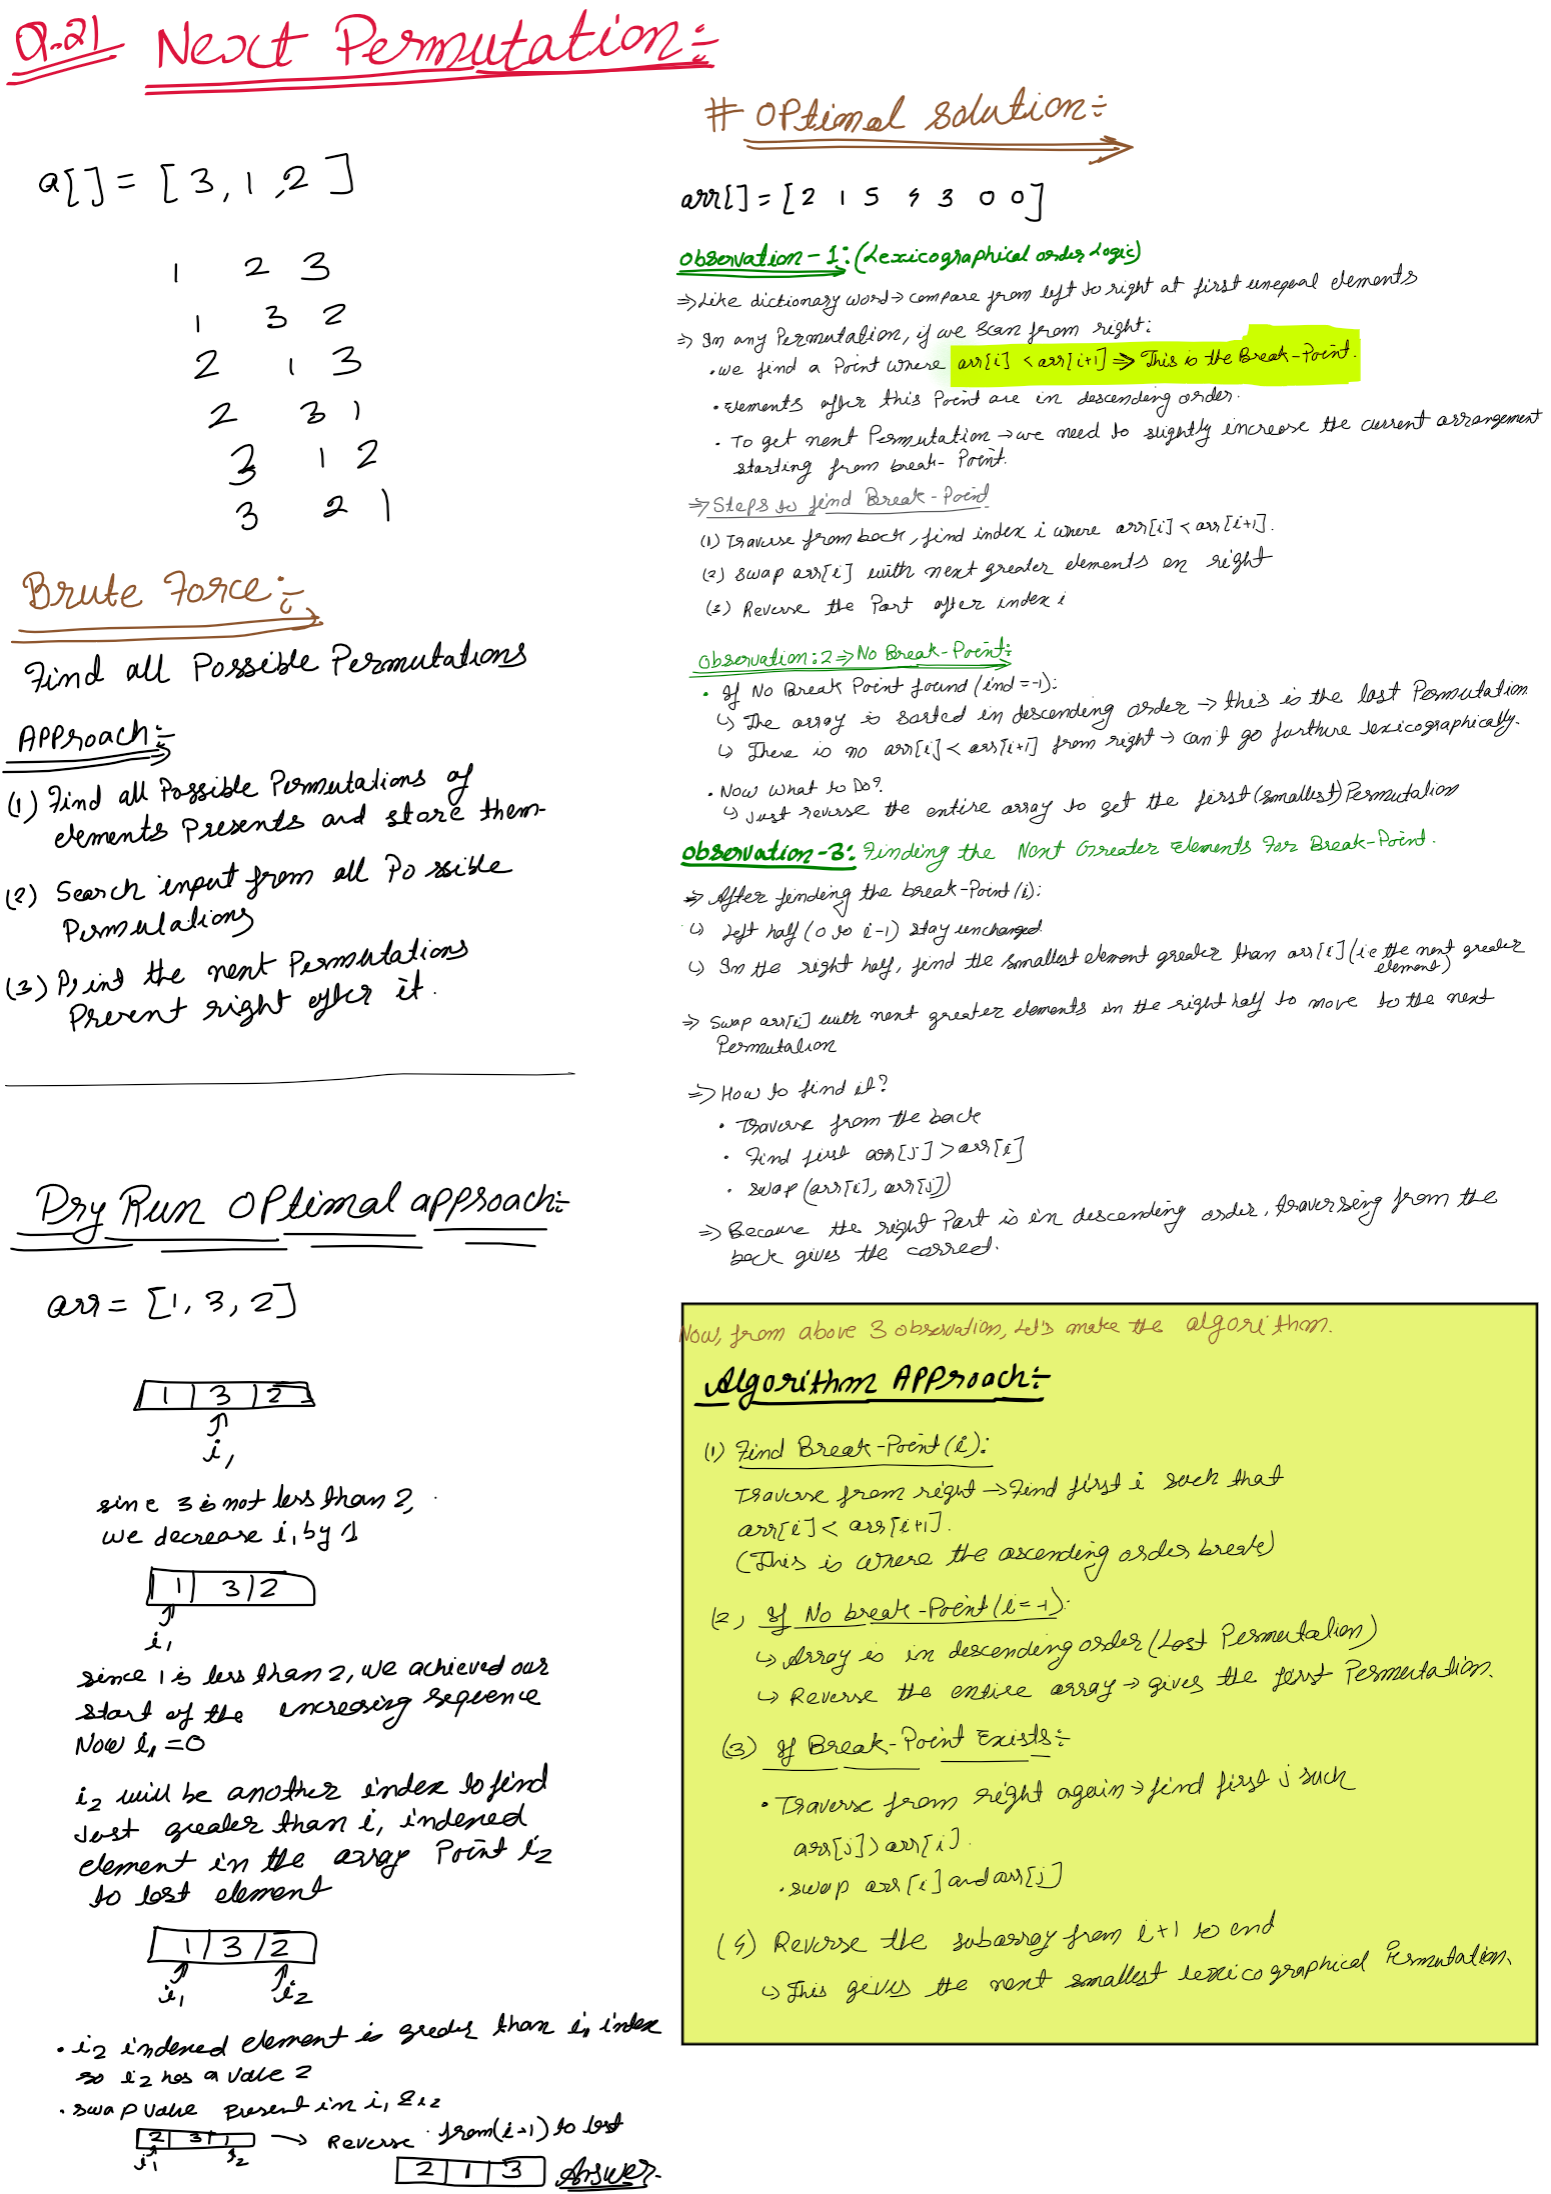 Q.21 Next Permutation:
a[] = [3, 1, 2]
1 2 3
1 3 2
2 1 3
2 3 1
3 1 2
3 2 1
Brute Force:
Find all Possible Permutations
Approach:
(1) Find all Possible Permutations of
elements Presents and store them
(2) Search input from all Possible
Permutations
(3) Print the next Permutations
Present right after it.
Dry Run Optimal approach:
arr = [1, 3, 2]
1 3 2
i₁
since 3 is not less than 2,
we decrease i₁ by 1
1 3 2
i₁
since 1 is less than 2, we achieved our
start of the increasing sequence
Now i₁ = 0
i₂ will be another index to find
Just greater than i₁ indexed
element in the array Point i₂
to last element
1 3 2
i₁ i₂
• i₂ indexed element is greater than i₁ index
so i₂ has a value 2
• swap value Present in i₁ & i₂
2 3 1 → Reverse from (i+1) to last
i₁ i₂
2 1 3 Answer.
# Optimal solution:
arr[] = [2 1 5 4 3 0 0]
Observation-1: (Lexicographical order Logic)
⇒ Like dictionary word → compare from left to right at first unequal elements
⇒ In any Permutation, if we Scan from right:
• we find a Point where arr[i] < arr[i+1] ⇒ This is the Break-Point.
• Elements after this Point are in descending order.
• To get next Permutation → we need to slightly increase the current arrangement
starting from break-Point.
⇒ Steps to find Break-Point
(1) Traverse from back, find index i where arr[i] < arr[i+1].
(2) Swap arr[i] with next greater elements on right
(3) Reverse the Part after index i
Observation:2 ⇒ No Break-Point:
• If No Break Point found (ind = -1):
↳ The array is sorted in descending order → this is the last Permutation
↳ There is no arr[i] < arr[i+1] from right → can't go furthure lexicographically.
• Now What to Do?
↳ Just reverse the entire array to get the first (smallest) Permutation
Observation-3: Finding the Next Greater Elements For Break-Point.
⇒ After finding the break-Point (i):
↳ Left half (0 to i-1) stay unchanged
↳ In the right half, find the smallest element greater than arr[i] (i.e the next greater
element)
⇒ Swap arr[i] with next greater elements in the right half to move to the next
Permutation
⇒ How to find it?
• Traverse from the back
• Find first arr[j] > arr[i]
• swap (arr[i], arr[j])
⇒ Because the right Part is in descending order, traversing from the
back gives the correct.
Now, from above 3 observation, Let's make the algorithm.
Algorithm Approach:
(1) Find Break-Point (i):
Traverse from right → Find first i such that
arr[i] < arr[i+1].
(This is where the ascending order break)
(2) If No break-Point (i = -1):
↳ Array is in descending order (Last Permutation)
↳ Reverse the entire array → gives the first Permutation.
(3) If Break-Point Exists:
• Traverse from right again → find first j such
arr[j] > arr[i].
• swap arr[i] and arr[j]
(4) Reverse the subarray from i+1 to end
↳ This gives the next smallest lexicographical Permutation.